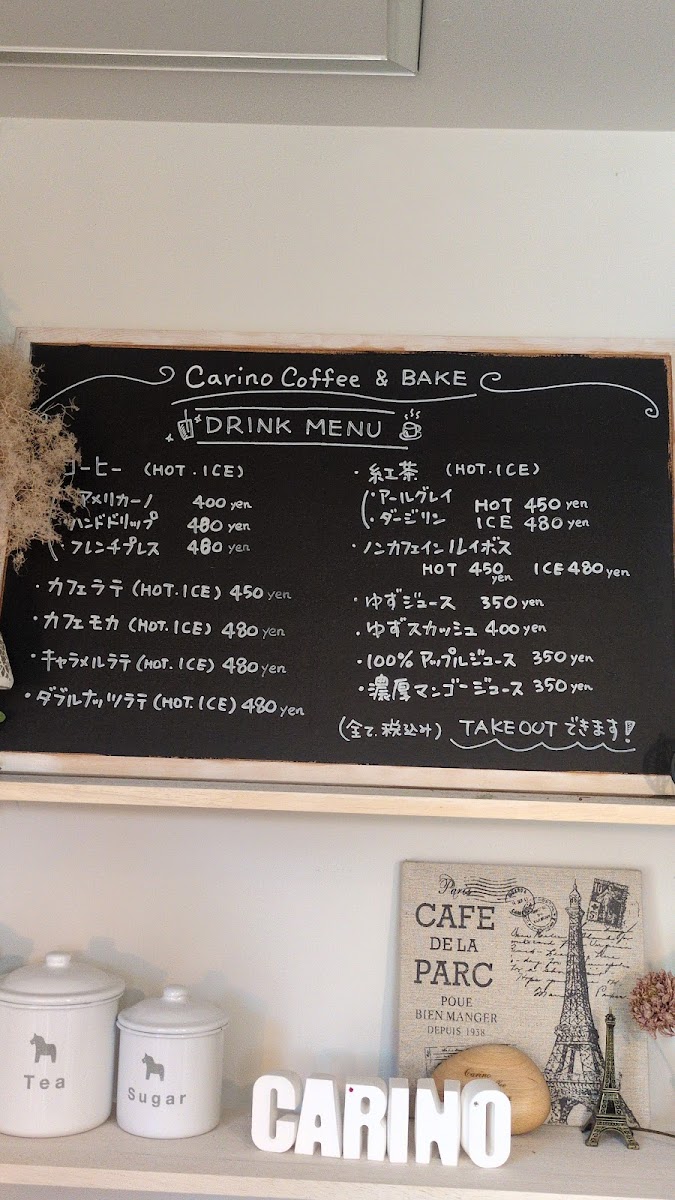 Carino Coffee & BAKE
DRINK MENU
コーヒー (HOT.ICE)
アメリカーノ 400 yen
ハンドドリップ 480 yen
・フレンチプレス 480 yen
・カフェラテ (HOT.ICE) 450 yen
・カフェモカ (HOT.ICE) 480 yen
・キャラメルラテ (HOT.ICE) 480 yen
・ダブルナッツラテ (HOT.ICE) 480 yen
・紅茶 (HOT.ICE)
・アールグレイ HOT 450 yen
・ダージリン ICE 480 yen
・ノンカフェインルイボス
HOT 450 yen ICE 480 yen
・ゆずジュース 350 yen
・ゆずスカッシュ 400 yen
・100% アップルジュース 350 yen
・濃厚マンゴージュース 350 yen
(全て税込み) TAKEOUTできます!
Paris
CAFE
DE LA
PARC
POUE
BIEN MANGER
DEPUIS 1938
Tea
Sugar
Carino
CARINO